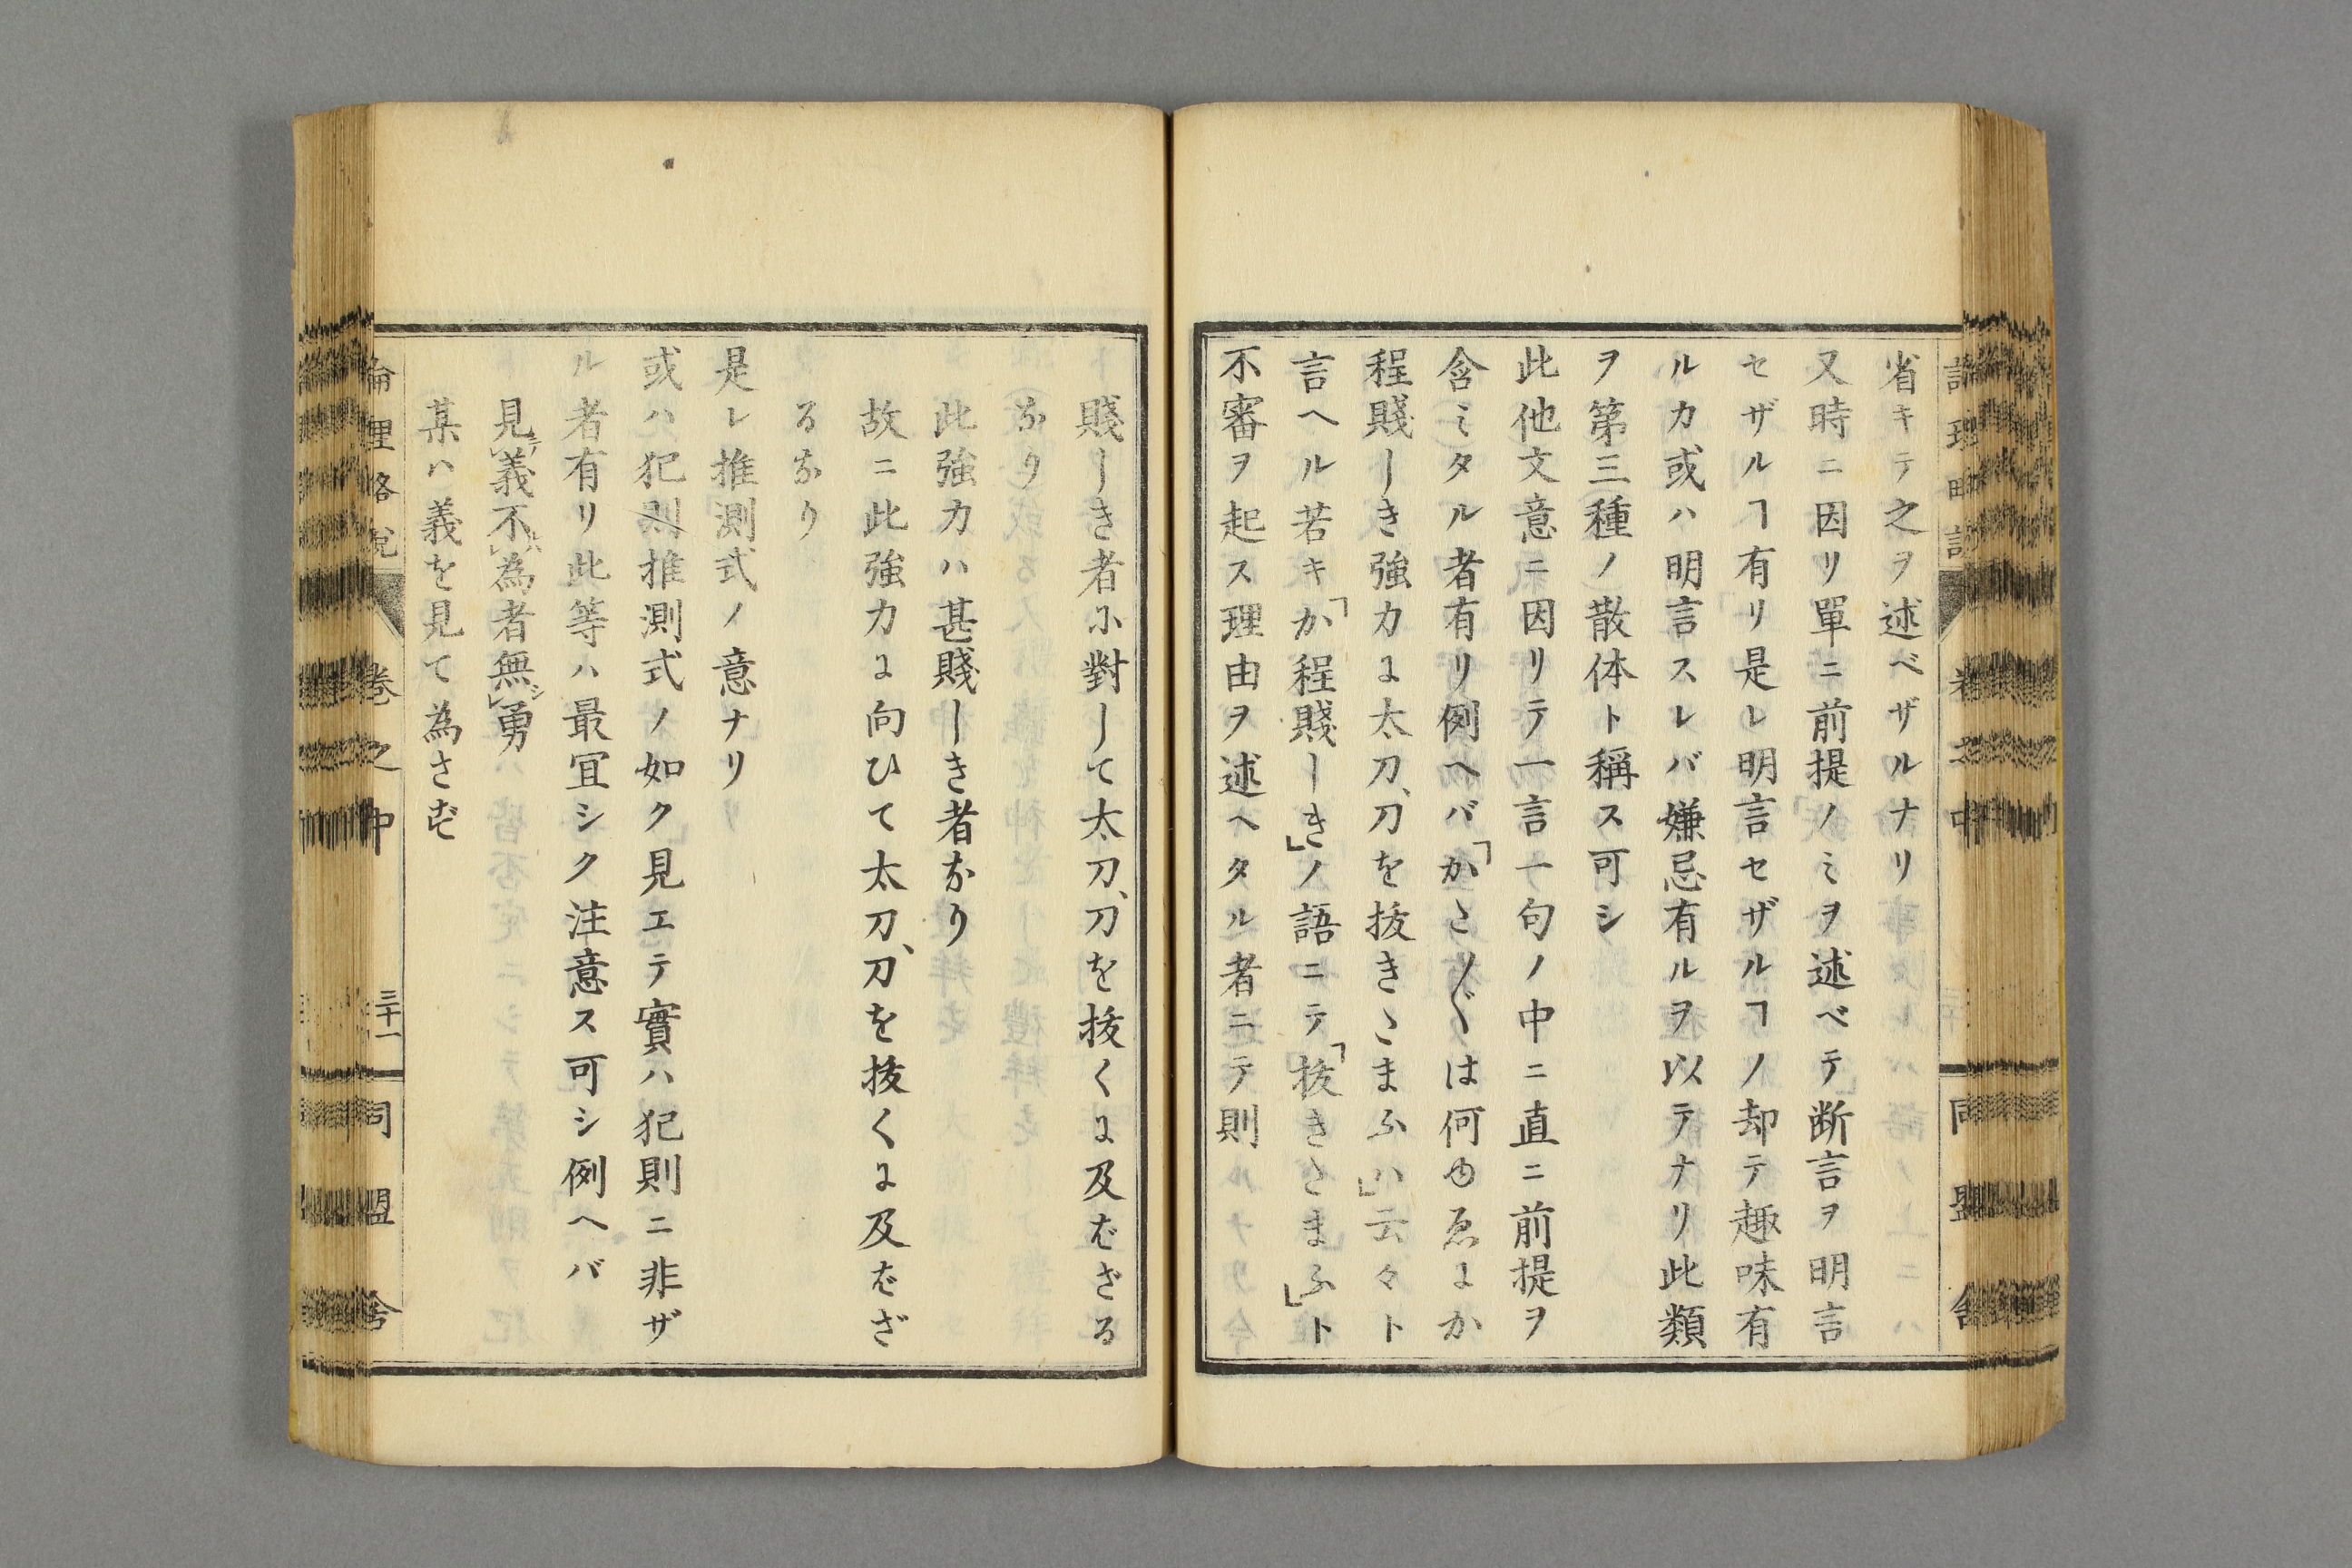 省キテ之ヲ述ベザルナリ
又時ニ因リ單ニ前提ノミヲ述ベテ断言ヲ明言
セザルヿ有リ是レ明言セザルヿノ却テ趣味有
ルカ或ハ明言スレバ嫌忌有ルヲ以テナリ此類
ヲ第三種ノ散体ト稱ス可シ
此他文意ニ因リテ一言一句ノ中ニ直ニ前提ヲ
含ミタル者有リ例ヘバ「かさ〴〵は何ゆゑにか
程賤しき強力に太刀、刀を抜きさまふハ」云々ト
言ヘル若キ「か程賤しき」ノ語ニテ「抜きさまふ」ト
不審ヲ起ス理由ヲ述ヘタル者ニテ則
賤しき者に對して太刀、刀を抜くに及ばざる
なり
此強力ハ甚賤しき者なり
故ニ此強力に向ひて太刀、刀を抜くに及ばざ
るなり
是レ推測式ノ意ナリ
或ハ犯則推測式ノ如ク見エテ實ハ犯則ニ非ザ
ル者有リ此等ハ最冝シク注意ス可シ例ヘバ
見義不為者無勇
某ハ義を見て為さず
卷之中
三十一
同盟舎